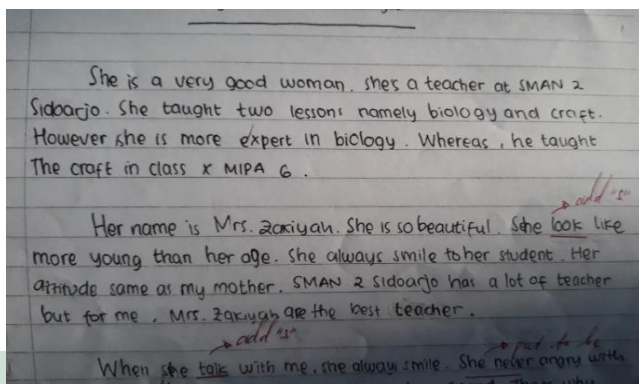 She is a very good woman. she's a teacher at SMAN 2
Sidoarjo. She taught two lessons namely biology and craft.
However she is more expert in biology. Whereas, he taught
The craft in class X MIPA 6.
add "s"
Her name is Mrs. Zakiyah. She is so beautiful. She look like
more young than her age. She always smile to her student. Her
attitude same as my mother. SMAN 2 Sidoarjo has a lot of teacher
but for me, Mrs. Zakiyah are the best teacher.
add "s"
put to be
When she talk with me, she always smile. She never angry with